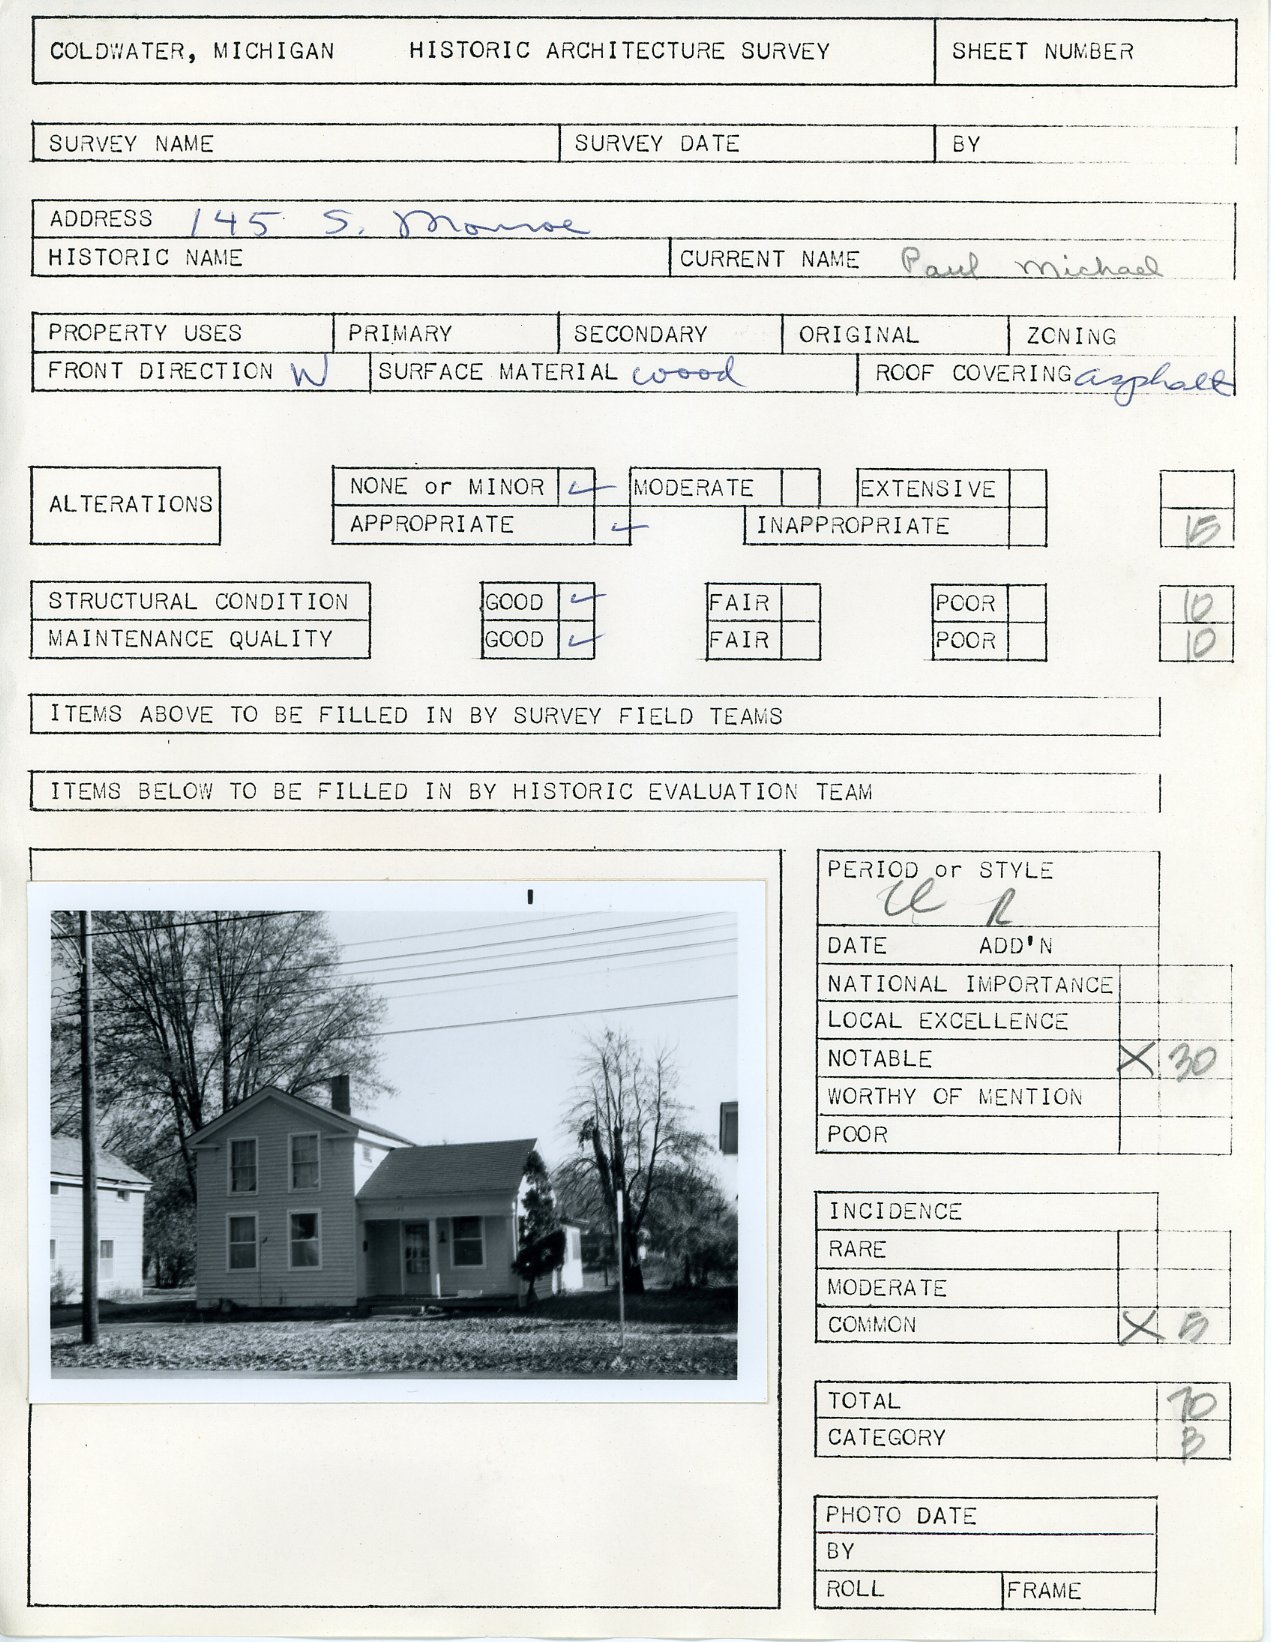 COLDWATER, MICHIGAN HISTORIC ARCHITECTURE SURVEY SHEET NUMBER
SURVEY NAME SURVEY DATE BY
ADDRESS 145 S. Monroe
HISTORIC NAME CURRENT NAME Paul Michael
PROPERTY USES PRIMARY SECONDARY ORIGINAL ZONING
FRONT DIRECTION W SURFACE MATERIAL wood ROOF COVERING asphalt
ALTERATIONS
NONE or MINOR ✓ MODERATE EXTENSIVE
APPROPRIATE ✓ INAPPROPRIATE 15
STRUCTURAL CONDITION GOOD ✓ FAIR POOR 10
MAINTENANCE QUALITY GOOD ✓ FAIR POOR 10
ITEMS ABOVE TO BE FILLED IN BY SURVEY FIELD TEAMS
ITEMS BELOW TO BE FILLED IN BY HISTORIC EVALUATION TEAM
PERIOD or STYLE
R
DATE ADD'N
NATIONAL IMPORTANCE
LOCAL EXCELLENCE
NOTABLE X 30
WORTHY OF MENTION
POOR
INCIDENCE
RARE
MODERATE
COMMON X 5
TOTAL 70
CATEGORY B
PHOTO DATE
BY
ROLL FRAME